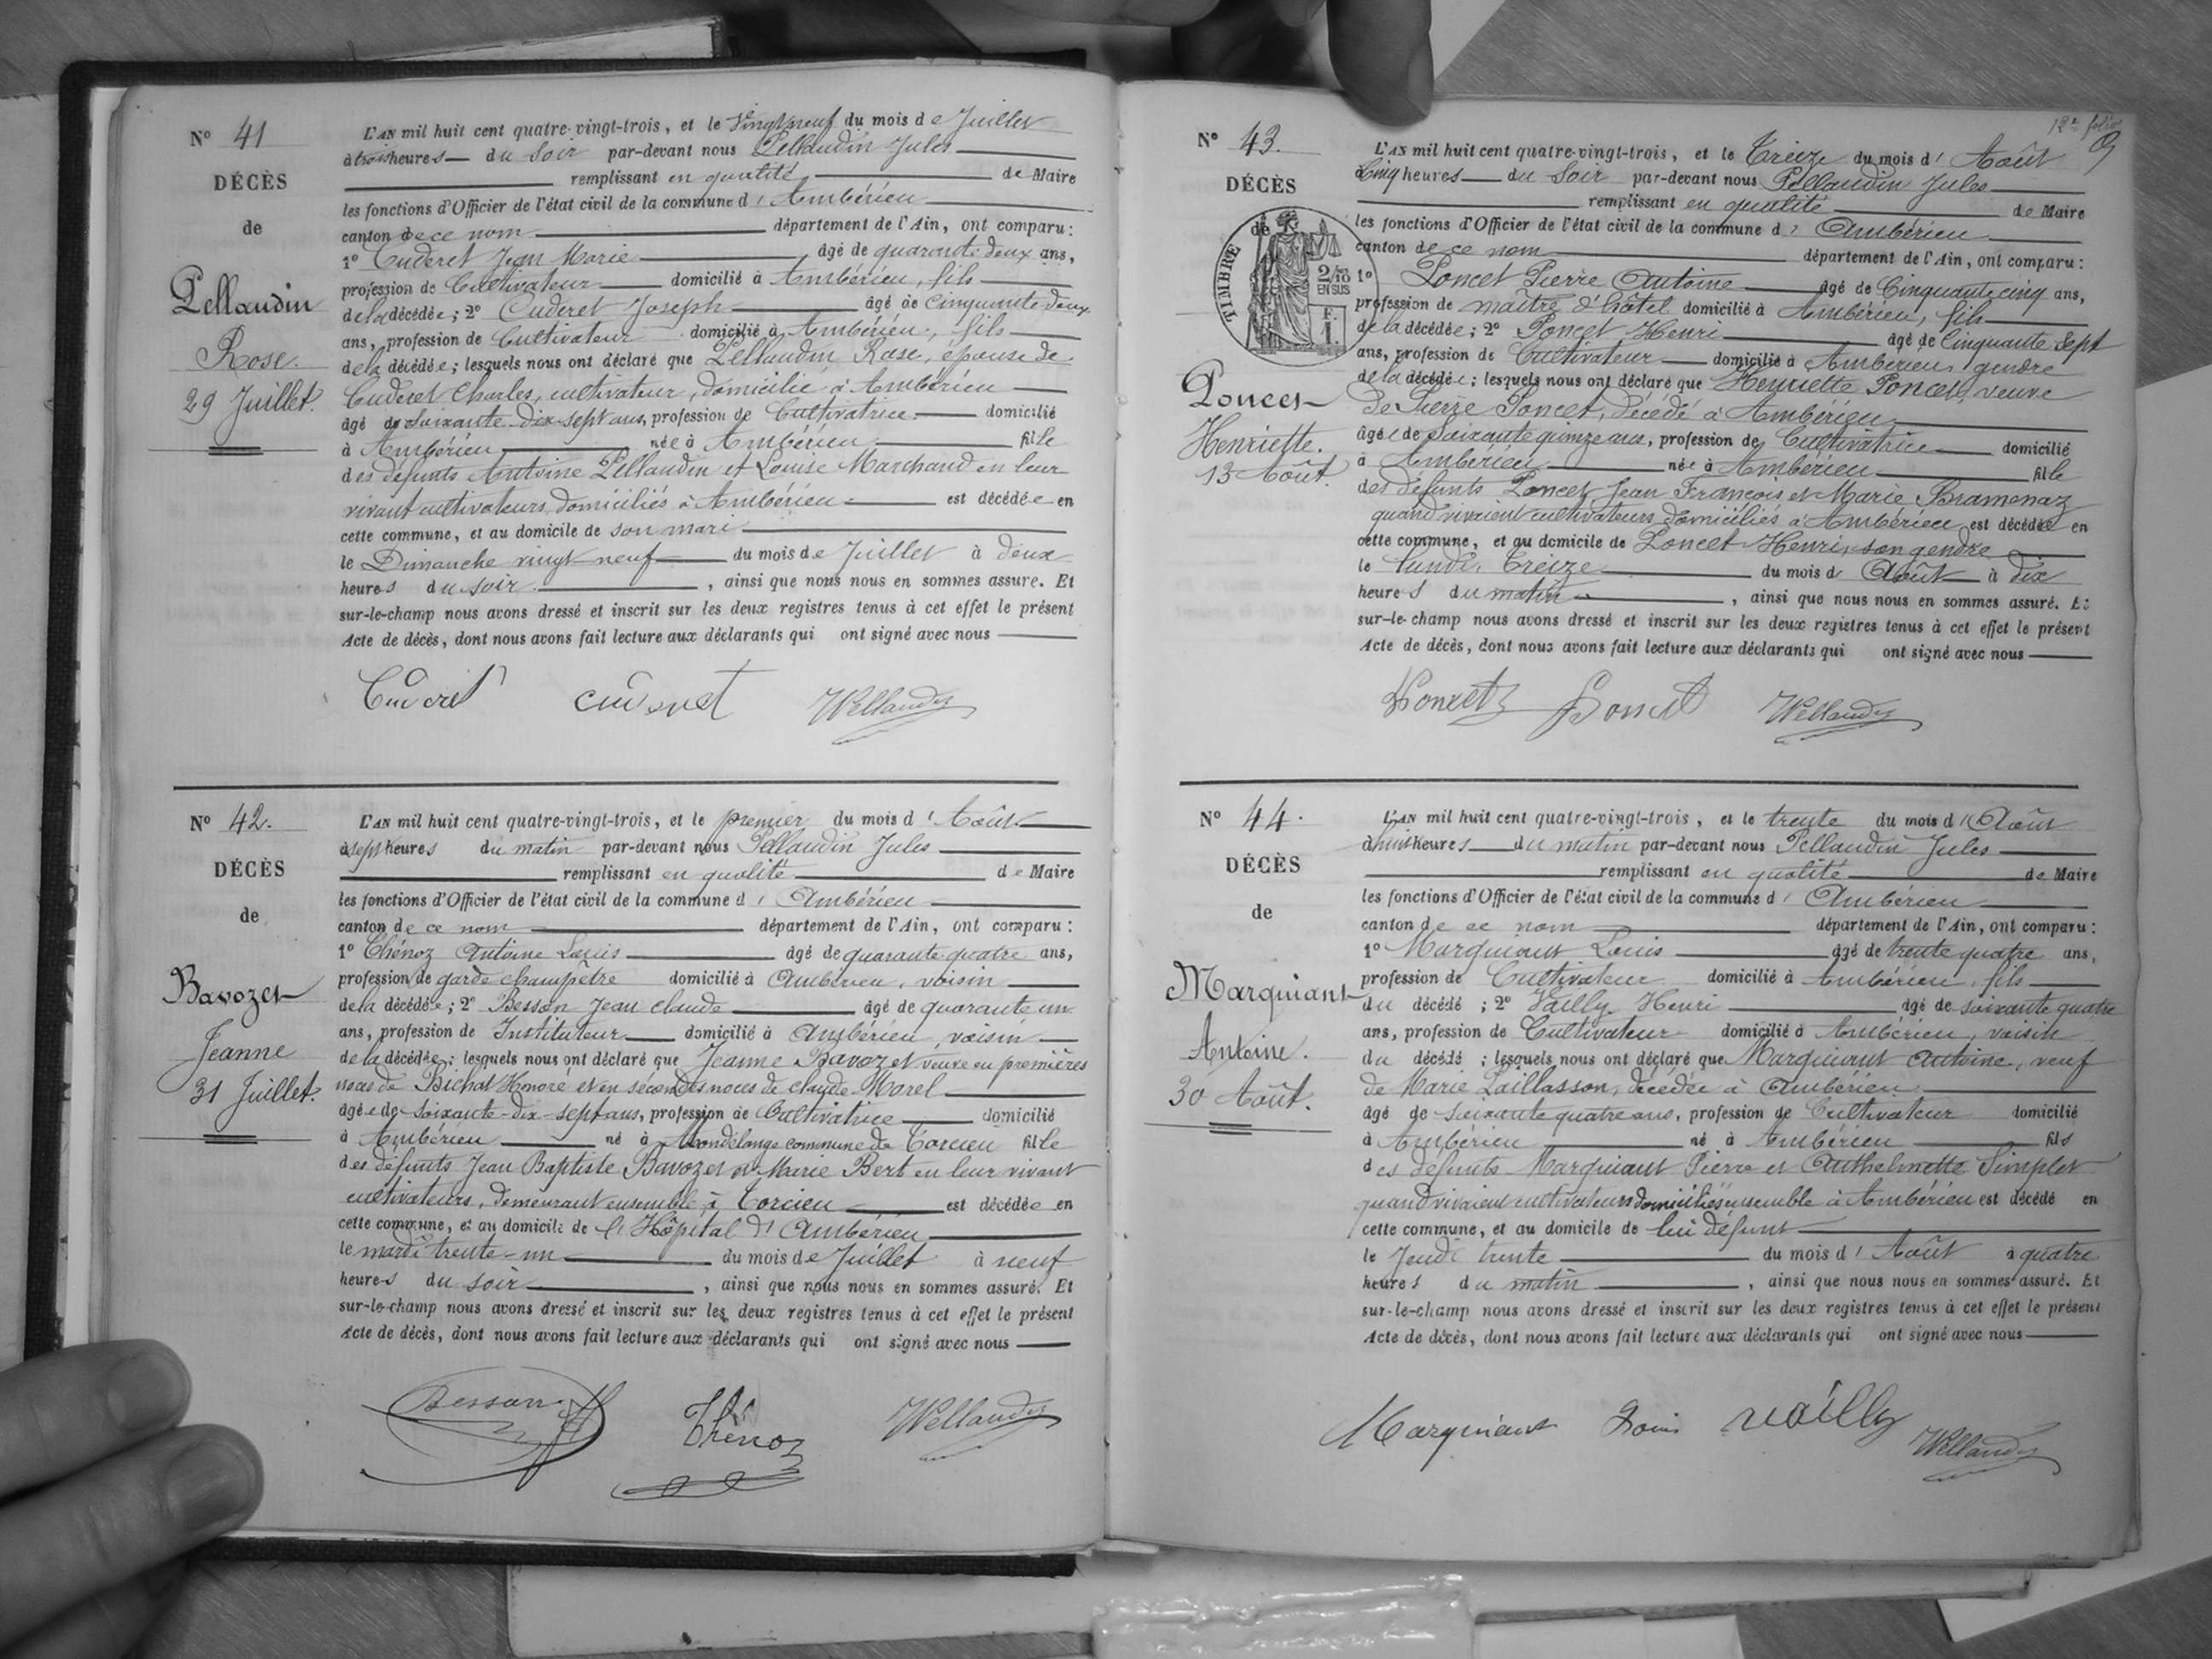 N° 41
DÉCÈS
de
Pellaudin
Rose.
29 Juillet.
L'AN mil huit cent quatre-vingt-trois, et le Vingt neuf du mois de Juillet
à trois heures du Soir par-devant nous Pellaudin Jules
remplissant en qualité de Maire
les fonctions d'Officier de l'état civil de la commune d'Ambérieu
canton de ce nom département de l'Ain, ont comparu :
1° Cuderet Jean Marie âgé de quarante deux ans,
profession de Cultivateur domicilié à Ambérieu, fils
de la décédée ; 2° Cuderet Joseph âgé de Cinquante deux
ans, profession de Cultivateur domicilié à Ambérieu, fils
de la décédée ; lesquels nous ont déclaré que Pellaudin Rose, épouse de
Cuderet Charles, cultivateur, domicilié à Ambérieu
âgé de Soixante-dix-sept ans, profession de Cultivatrice domicilié
à Ambérieu née à Ambérieu fille
des défunts Antoine Pellaudin et Louise Marchand en leur
vivant cultivateurs domiciliés à Ambérieu est décédée en
cette commune, et au domicile de son mari
le Dimanche vingt-neuf du mois de Juillet à deux
heures du soir, ainsi que nous nous en sommes assuré. Et
sur-le-champ nous avons dressé et inscrit sur les deux registres tenus à cet effet le présent
Acte de décès, dont nous avons fait lecture aux déclarants qui ont signé avec nous
N° 42.
DÉCÈS
de
Bavozet
Jeanne
31 Juillet.
L'AN mil huit cent quatre-vingt-trois, et le premier du mois d'Août
à sept heures du matin par-devant nous Pellaudin Jules
remplissant en qualité de Maire
les fonctions d'Officier de l'état civil de la commune d'Ambérieu
canton de ce nom département de l'Ain, ont comparu :
1° Thénoz Antoine Louis âgé de quarante quatre ans,
profession de garde champêtre domicilié à Ambérieu, voisin
de la décédée ; 2° Besson Jean Claude âgé de quarante un
ans, profession de Instituteur domicilié à Ambérieu, voisin
de la décédée ; lesquels nous ont déclaré que Jeanne Bavozet veuve en premières
noces de Bichat Honoré et en secondes noces de Claude Morel
âgée de soixante-dix-sept ans, profession de Cultivatrice domicilié
à Ambérieu né à commune de Torcieu fille
des défunts Jean Baptiste Bavozet et Marie Bert en leur vivant
cultivateurs, demeurant ensemble à Torcieu est décédée en
cette commune, et au domicile de l'Hôpital d'Ambérieu
le mardi trente-un du mois de Juillet à neuf
heures du soir, ainsi que nous nous en sommes assuré. Et
sur-le-champ nous avons dressé et inscrit sur les deux registres tenus à cet effet le présent
Acte de décès, dont nous avons fait lecture aux déclarants qui ont signé avec nous
Besson
Thénoz
12e folio
N° 43.
DÉCÈS
de
TIMBRE
2/10 EN SUS
F. 1.
Poncet
Henriette.
13 Août.
L'AN mil huit cent quatre-vingt-trois, et le Treize du mois d'Août
Cinq heures du Soir par-devant nous Pellaudin Jules
remplissant en qualité de Maire
les fonctions d'Officier de l'état civil de la commune d'Ambérieu
canton de ce nom département de l'Ain, ont comparu :
1° Poncet Pierre Antoine âgé de Cinquante cinq ans,
profession de maître d'hôtel domicilié à Ambérieu, fils
de la décédée ; 2° Poncet Henri âgé de Cinquante Sept
ans, profession de Cultivateur domicilié à Ambérieu, gendre
de la décédée ; lesquels nous ont déclaré que Henriette Poncet, veuve
de Pierre Poncet, décédé à Ambérieu
âgée de Soixante quinze ans, profession de Cultivatrice domicilié
à Ambérieu née à Ambérieu fille
des défunts Poncet Jean François et Marie Bramenaz
quand vivaient cultivateurs domiciliés à Ambérieu est décédée en
cette commune, et au domicile de Poncet Henri, son gendre
le lundi Treize du mois d'Août à dix
heures du matin, ainsi que nous nous en sommes assuré. Et
sur-le-champ nous avons dressé et inscrit sur les deux registres tenus à cet effet le présent
Acte de décès, dont nous avons fait lecture aux déclarants qui ont signé avec nous
Poncet Poncet
N° 44.
DÉCÈS
de
Marquiant
Antoine.
30 Août.
L'AN mil huit cent quatre-vingt-trois, et le trente du mois d'Août
à huit heures du matin par-devant nous Pellaudin Jules
remplissant en qualité de Maire
les fonctions d'Officier de l'état civil de la commune d'Ambérieu
canton de ce nom département de l'Ain, ont comparu :
1° Marquiant Louis âgé de trente quatre ans,
profession de Cultivateur domicilié à Ambérieu, fils
du décédé ; 2° Vailly Henri âgé de soixante quatre
ans, profession de Cultivateur domicilié à Ambérieu, voisin
du décédé ; lesquels nous ont déclaré que Marquiant Antoine, veuf
de Marie Laillasson, décédée à Ambérieu
âgé de soixante quatre ans, profession de Cultivateur domicilié
à Ambérieu né à Ambérieu fils
des défunts Marquiant Pierre et Anthelmette Simplet
quand vivaient cultivateurs domiciliés ensemble à Ambérieu est décédé en
cette commune, et au domicile de lui défunt
le Jeudi trente du mois d'Août à quatre
heures du matin, ainsi que nous nous en sommes assuré. Et
sur-le-champ nous avons dressé et inscrit sur les deux registres tenus à cet effet le présent
Acte de décès, dont nous avons fait lecture aux déclarants qui ont signé avec nous
Marquiant Louis Vailly